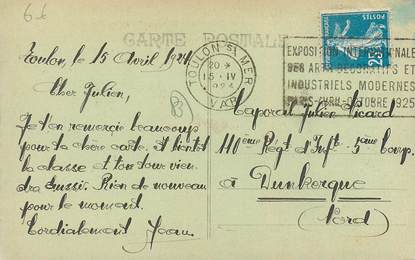 6.6
CARTE POSTALE
Toulon, le 15 Avril 1924
Cher Julien,
Je t'en remercie beaucoup
pour ta chère carte. Et bientôt
la classe et ton tour vien
dra aussi. Rien de nouveau
pour le moment.
Cordialement Jean
TOULON S/ MER
20 *
15 - IV
1924
VAR
EXPOSITION INTERNATIONALE
DES ARTS DECORATIFS ET
INDUSTRIELS MODERNES
PARIS-AVRIL-OCTOBRE 1925
POSTES
25
Caporal Julien
110ème Regt d'Inftie 5ème Comp.
à Dunkerque
(Nord)